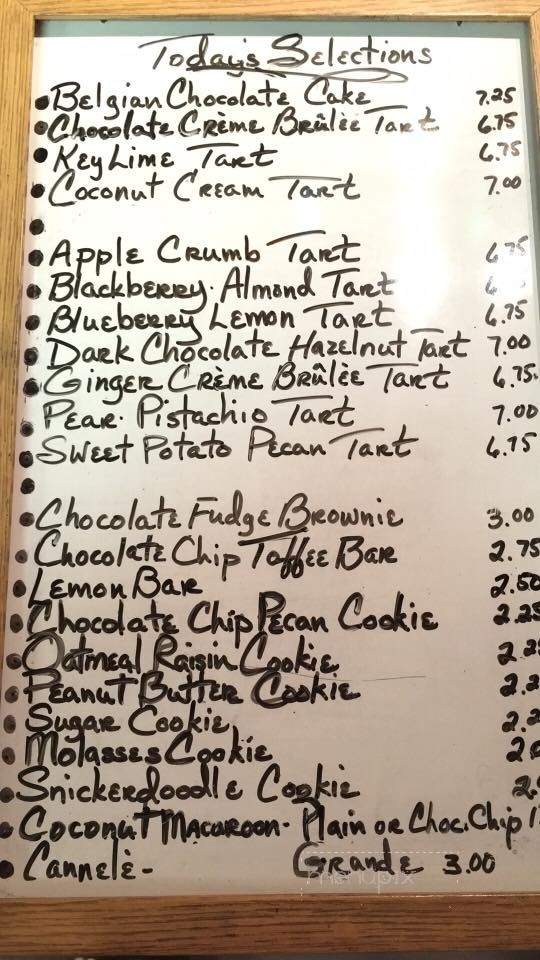 Today's Selections
• Belgian Chocolate Cake 7.25
• Chocolate Crème Brûlèe Tart 6.75
• Key Lime Tart 6.75
• Coconut Cream Tart 7.00
•
• Apple Crumb Tart 6.75
• Blackberry Almond Tart
• Blueberry Lemon Tart 6.75
• Dark Chocolate Hazelnut Tart 7.00
• Ginger Crème Brûlèe Tart 6.75
• Pear Pistachio Tart 7.00
• Sweet Potato Pecan Tart 6.75
•
• Chocolate Fudge Brownie 3.00
• Chocolate Chip Toffee Bar 2.75
• Lemon Bar 2.50
• Chocolate Chip Pecan Cookie 2.25
• Oatmeal Raisin Cookie
• Peanut Butter Cookie
• Sugar Cookie
• Molasses Cookie
• Snickerdoodle Cookie
• Coconut Macaroon - Plain or Choc. Chip
• Cannelè - Grande 3.00
menupix